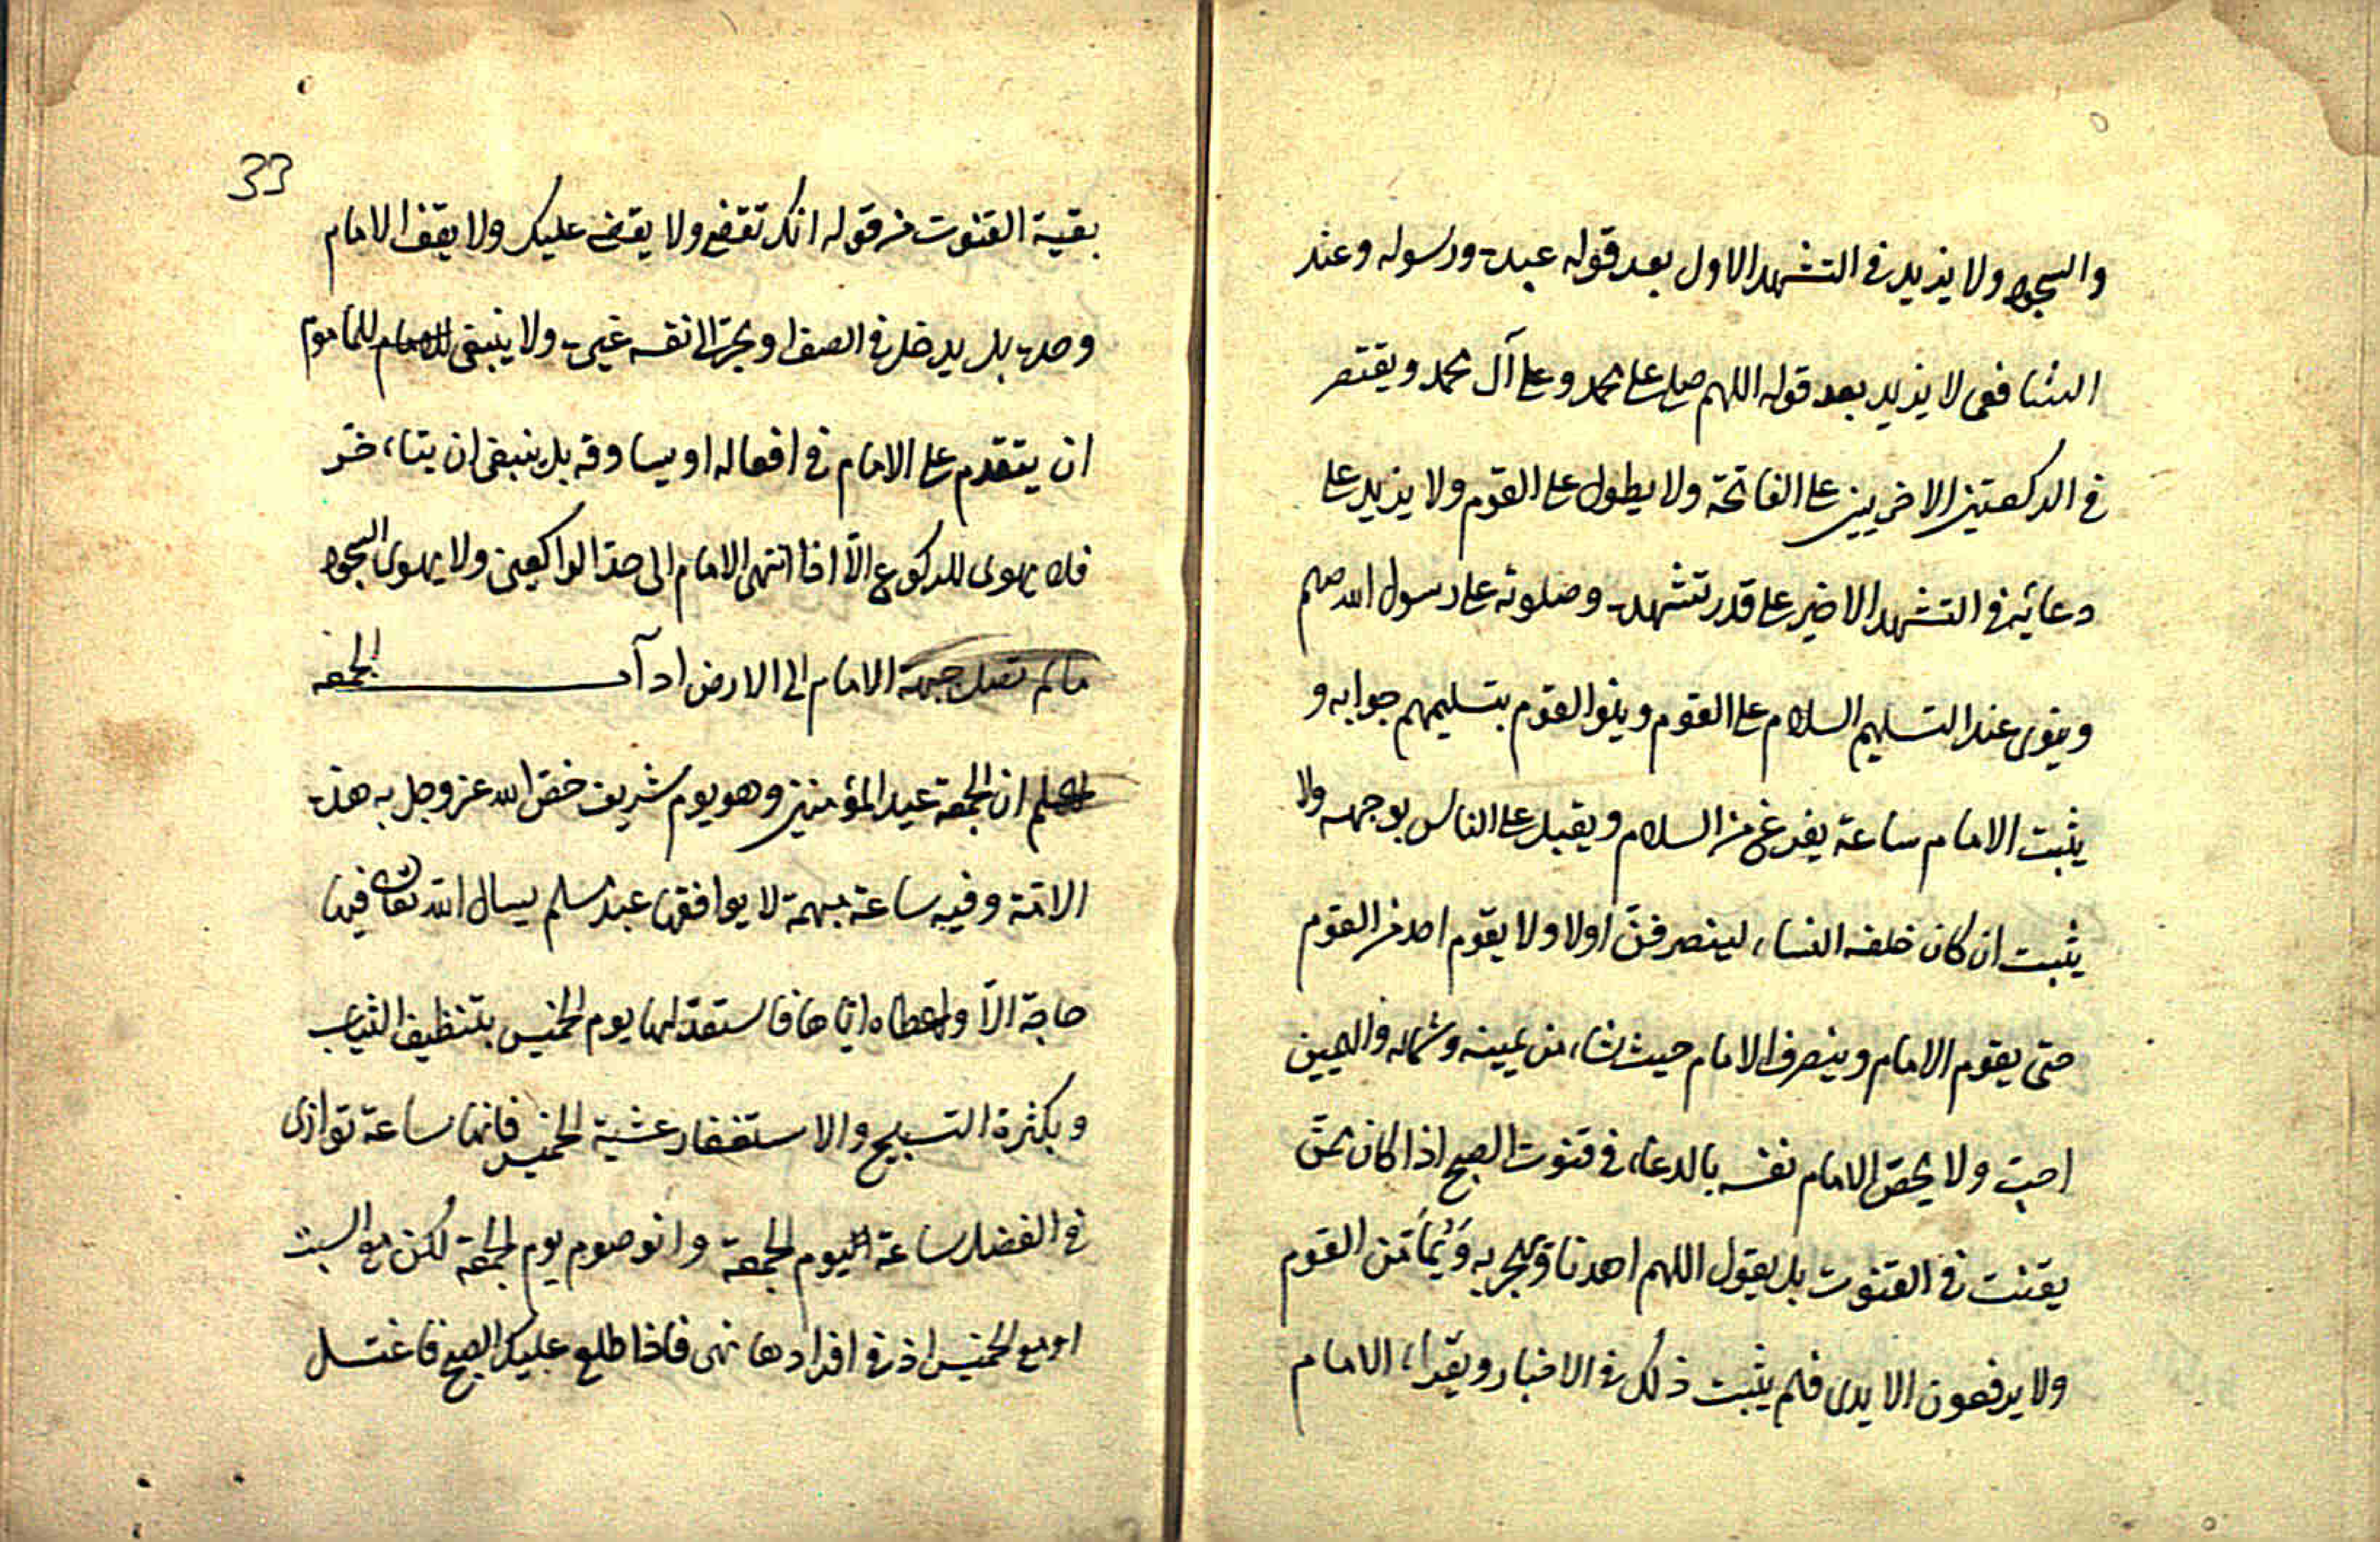 والسجود ولا يزيد في التشهد الاول بعد قوله عبده ورسوله وعند
الشافعى لا يزيد بعد قوله اللهم صل على محمد وعلى آل محمد ويقتصر
في الركعتين الاخريين على الفاتحة ولا يطول على القوم ولا يزيد على
دعائه في التشهد الاخير على قدر تشهده وصلوته على رسول الله صلعم
وينوى عند التسليم السلام على القوم وينوا القوم بتسليمهم جوابه و
يثبت الامام ساعة يفرغ من السلام ويقبل على الناس بوجهه ولا
يثبت ان كان خلفه النساء لينصرفن اولا ولا يقوم احد من القوم
حتى يقوم الامام وينصرف الامام حيث شاء من يمينه وشماله واليمين
احب ولا يخص الامام نفسه بالدعاء في قنوت الصبح اذا كان ممن
يقنت في القنوت بل يقول اللهم اهدنا ويجهر به ويؤمن القوم
ولا يرفعون الايدى فلم يثبت ذلك في الاخبار ويقراء الامام
33
بقية القنوت من قوله انك تقضى ولا يقضى عليك ولا يقف الامام
وحده بل يدخل في الصف او يجر الى نفسه غيره ولا ينبغى للماموم
ان يتقدم على الامام في افعاله او يساوقه بل ينبغى ان يتاءخر
فلا يهوى للركوع الا اذا انتهى الامام الى حد الراكعين ولا يهوى السجود
مالم تصل جبهة الامام الى الارض ادآب الجمعه
اعلم ان الجمعة عيد المؤمنين وهو يوم شريف خص الله عز وجل به هذه
الامة وفيه ساعة مبهمة لا يوافقها عبد مسلم يسال الله تعالى فيها
حاجة الا واعطاه اياها فاستعد لها يوم الخميس بتنظيف الثياب
وبكثرة التسبيح والاستغفار عشية الخميس فانها ساعة توازى
في الفضل ساعة اليوم الجمعة وانو صوم يوم الجمعة لكن مع السبت
او مع الخميس اذ في افرادها نهى فاذا طلع عليك الصبح فاغتسل